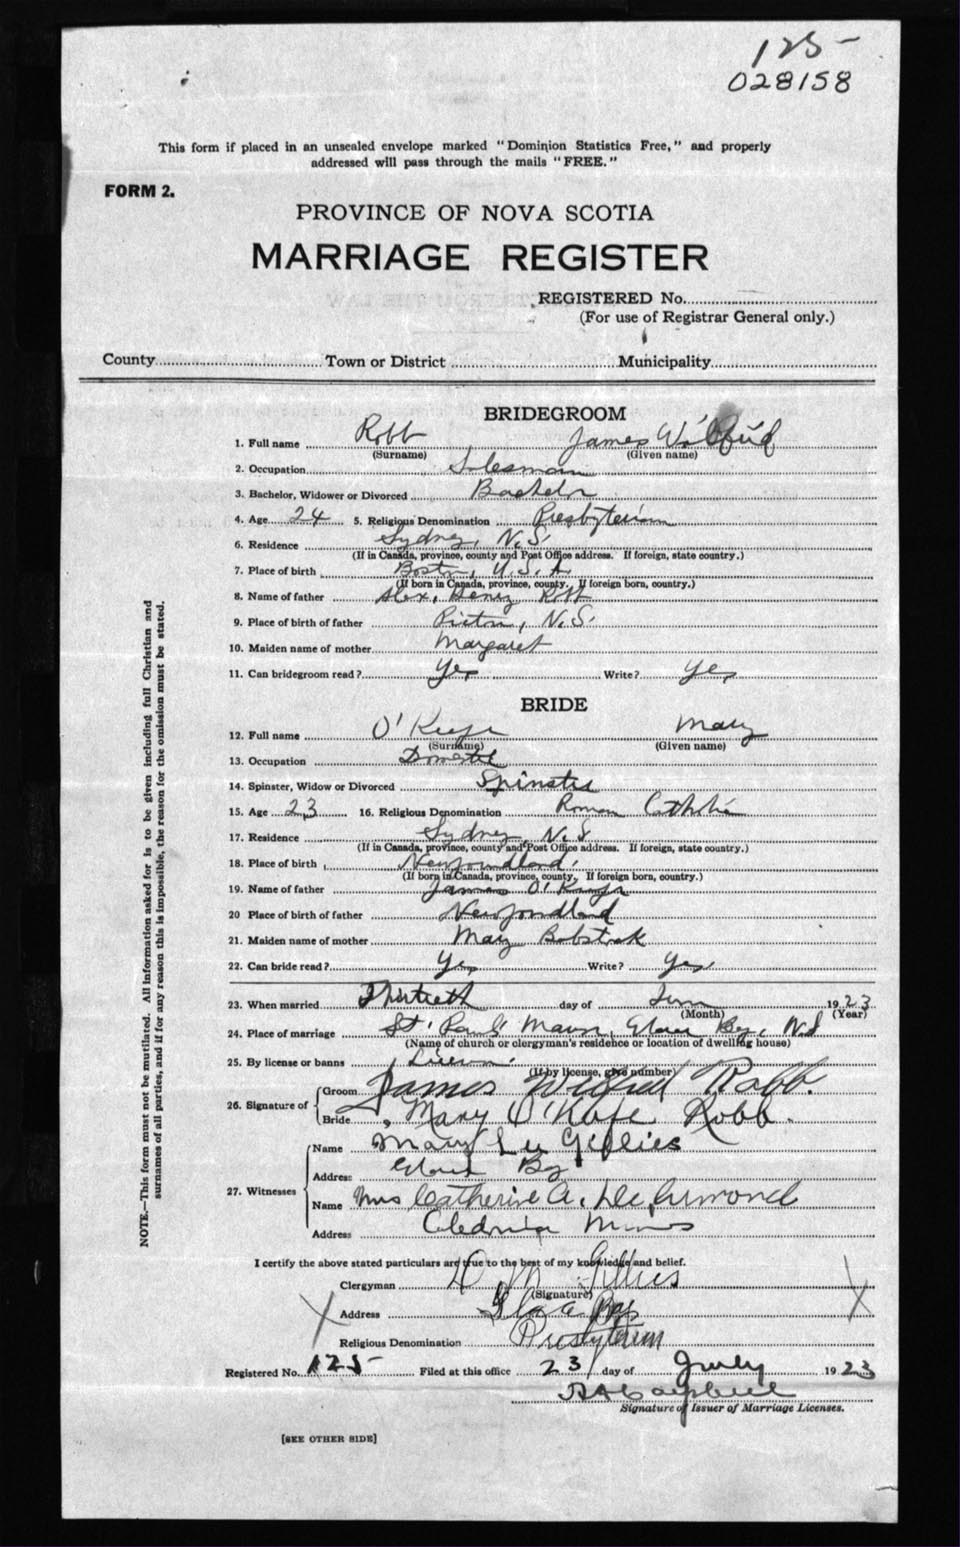 125-
028158
This form if placed in an unsealed envelope marked "Dominion Statistics Free," and properly
addressed will pass through the mails "FREE."
FORM 2.
PROVINCE OF NOVA SCOTIA
MARRIAGE REGISTER
REGISTERED No.
(For use of Registrar General only.)
County Town or District Municipality
BRIDEGROOM
1. Full name Robb James Wilfrid
(Surname) (Given name)
2. Occupation Salesman
3. Bachelor, Widower or Divorced Bachelor
4. Age 24 5. Religious Denomination Presbyterian
6. Residence Sydney, N.S.
(If in Canada, province, county and Post Office address. If foreign, state country.)
7. Place of birth Boston, U.S.A.
(If born in Canada, province, county, If foreign born, country.)
8. Name of father Alex, Henry Robb
9. Place of birth of father Pictou, N.S.
10. Maiden name of mother Margaret
11. Can bridegroom read? Yes Write? Yes
BRIDE
12. Full name O'Keefe Mary
(Surname) (Given name)
13. Occupation Domestic
14. Spinster, Widow or Divorced Spinster
15. Age 23 16. Religious Denomination Roman Catholic
17. Residence Sydney N.S.
(If in Canada, province, county and Post Office address. If foreign, state country.)
18. Place of birth Newfoundland.
(If born in Canada, province, county, If foreign born, country.)
19. Name of father James O'Keefe
20 Place of birth of father Newfoundland
21. Maiden name of mother Mary
22. Can bride read? Yes Write? Yes
23. When married Thirtieth day of June 1923
(Month) (Year)
24. Place of marriage St. Paul's Manse, Glace Bay, N.S
(Name of church or clergyman's residence or location of dwelling house)
25. By license or banns License.
(If by license, give number)
26. Signature of Groom James Wilfred Robb.
Bride Mary O'Kefe Robb.
27. Witnesses Name Mary Gillies
Address Glace Bay
Name Mrs Catherine A.
Address Caledonia Mines
I certify the above stated particulars are true to the best of my knowledge and belief.
Clergyman D M Gillies
(Signature)
Address Glace Bay
Religious Denomination Presbyterian
Registered No. 125- Filed at this office 23 day of July 1923
Campbell
Signature of Issuer of Marriage Licenses.
[SEE OTHER SIDE]
NOTE.—This form must not be mutilated. All information asked for is to be given including full Christian and
surnames of all parties, and if for any reason this is impossible, the reason for the omission must be stated.